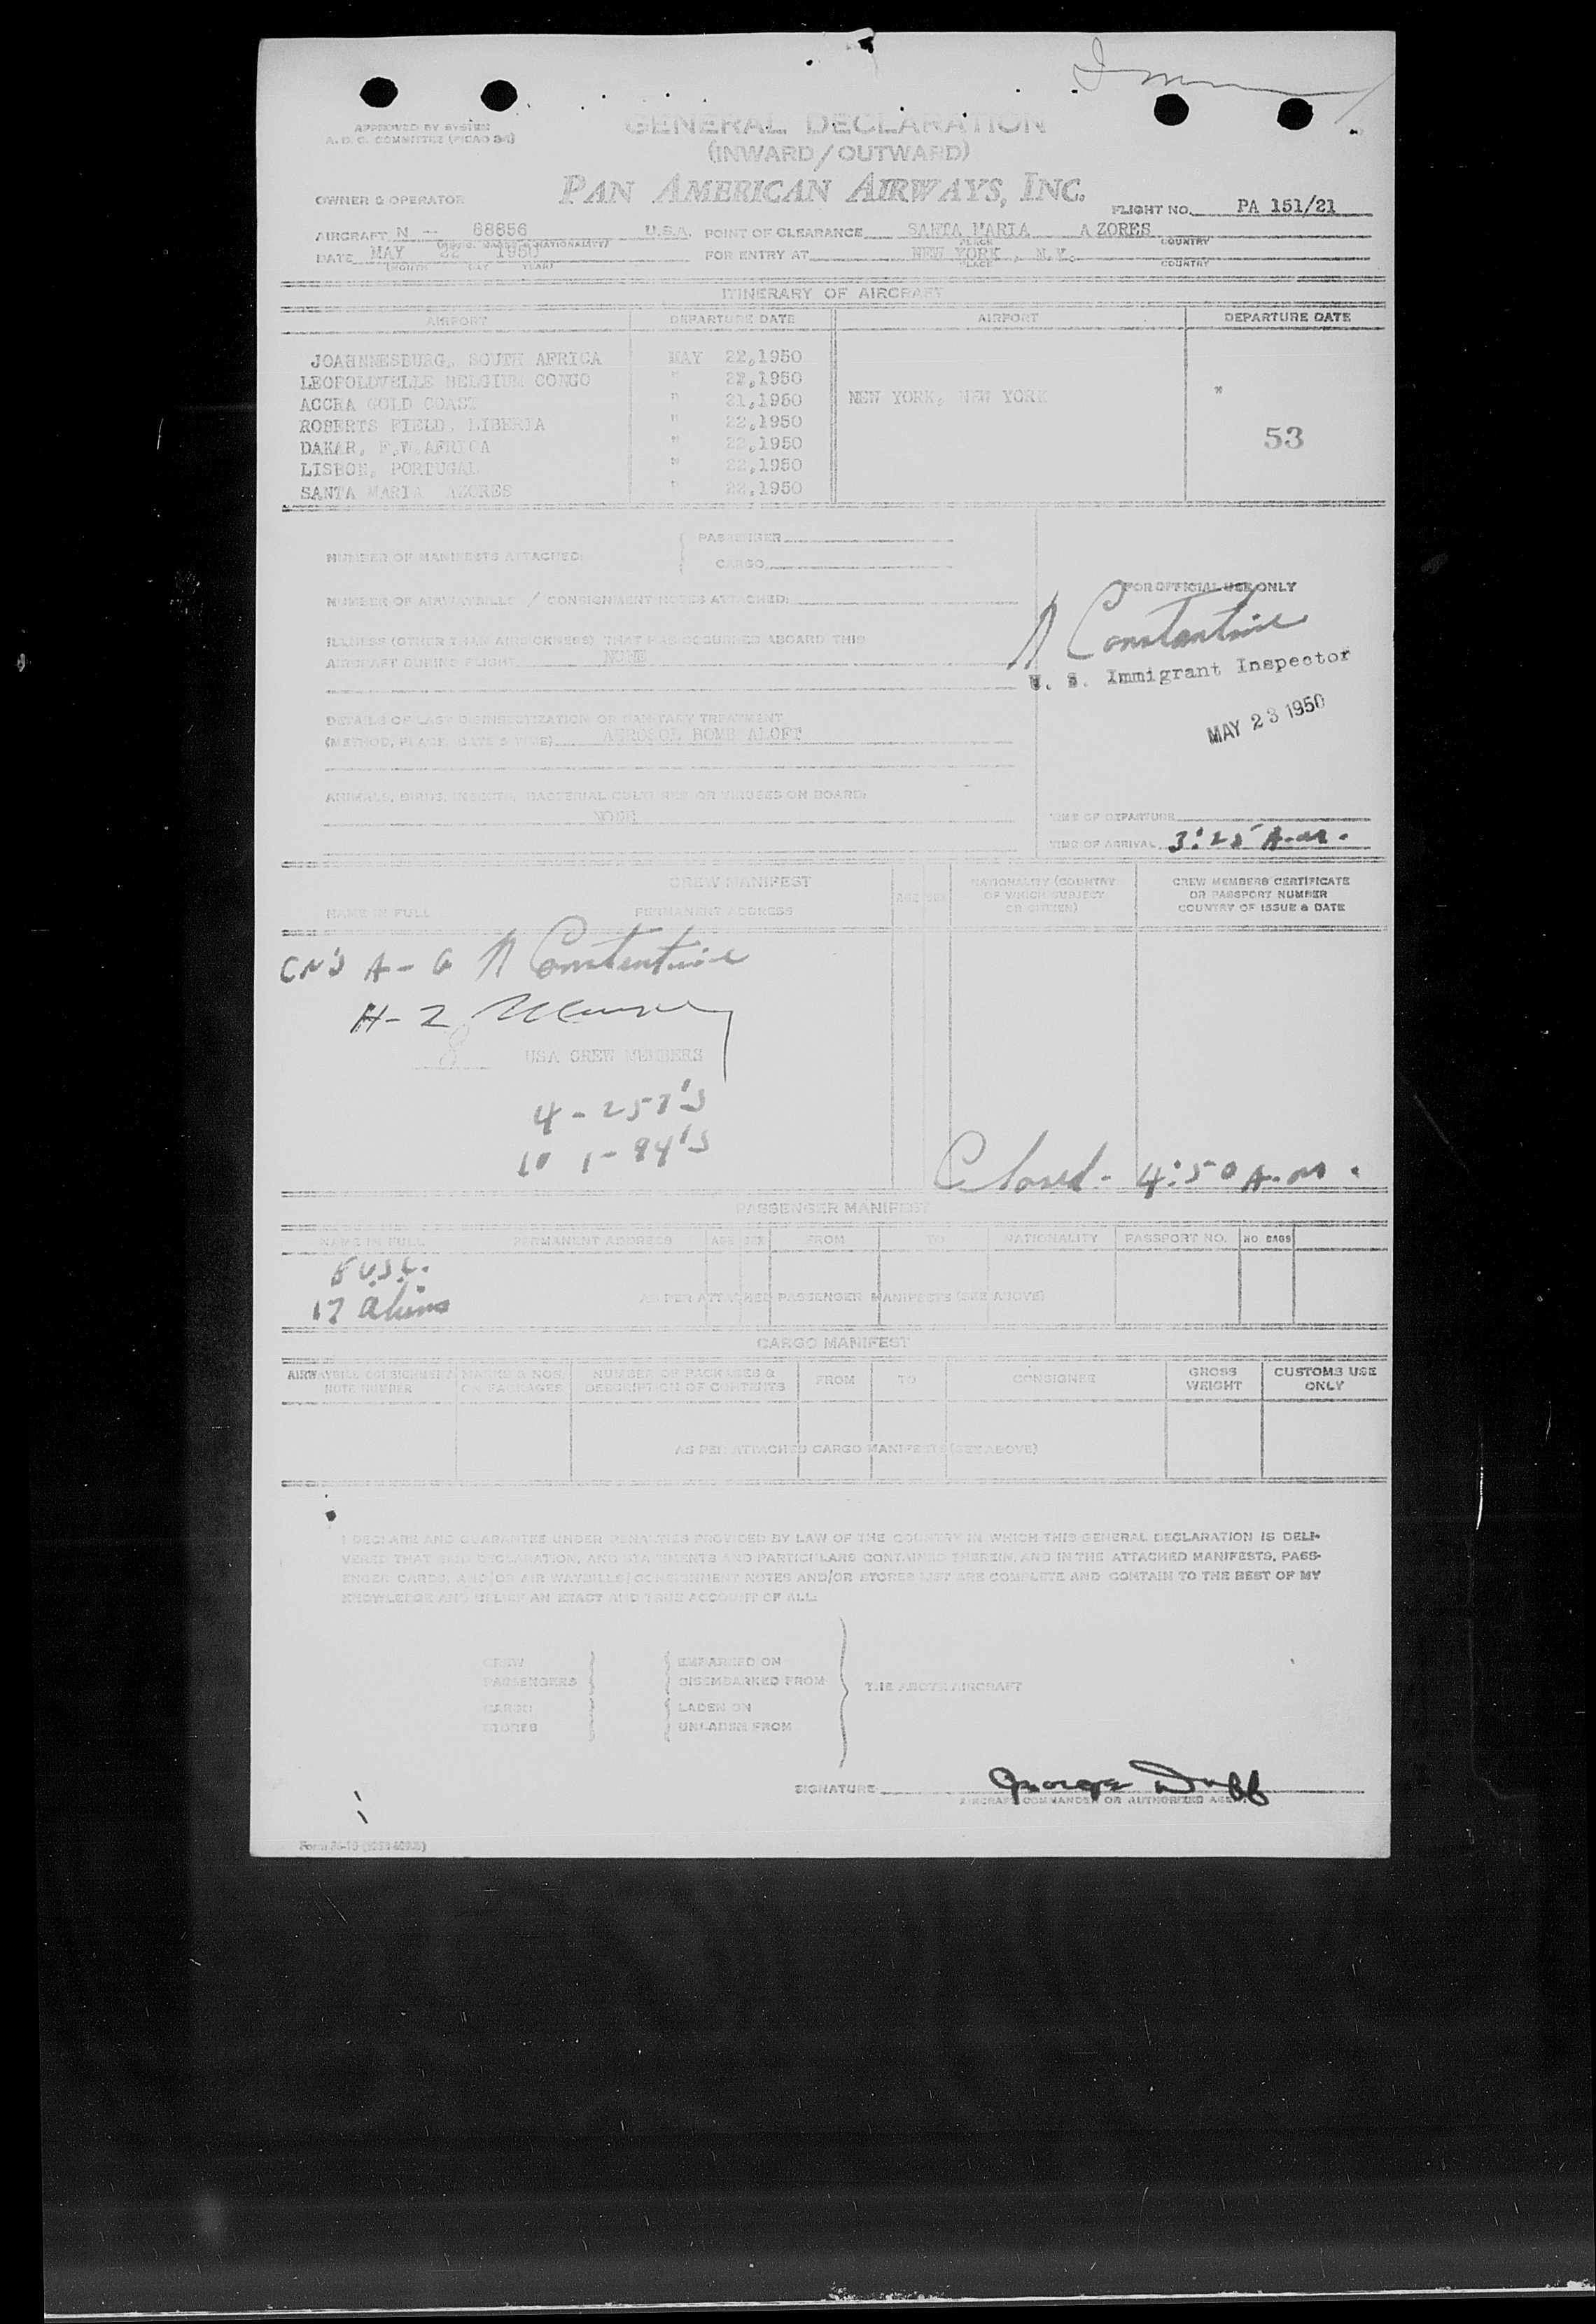 APPROVED BY SYSTEM
A. D. C. COMMITTEE (PICAO 34)
GENERAL DECLARATION
(INWARD/OUTWARD)
OWNER & OPERATOR PAN AMERICAN AIRWAYS, INC. FLIGHT NO. PA 151/21
AIRCRAFT N - 88856 U.S.A. POINT OF CLEARANCE SANTA MARIA AZORES
PLACE COUNTRY
DATE MAY 22 1950 FOR ENTRY AT NEW YORK, N.Y.
(MONTH DAY YEAR) PLACE COUNTRY
ITINERARY OF AIRCRAFT
AIRPORT DEPARTURE DATE AIRPORT DEPARTURE DATE
JOAHNNESBURG, SOUTH AFRICA MAY 22,1950
LEOPOLDVELLE BELGIUM CONGO " 22,1950
ACCRA GOLD COAST " 21,1950 NEW YORK, NEW YORK "
ROBERTS FIELD, LIBERIA " 22,1950
53
DAKAR, F.W.AFRICA " 22,1950
LISBON, PORTUGAL " 22,1950
SANTA MARIA AZORES " 22,1950
PASSENGER
NUMBER OF MANIFESTS ATTACHED:
CARGO
FOR OFFICIAL USE ONLY
NUMBER OF AIRWAYBILLS / CONSIGNMENT NOTES ATTACHED:
Constantine
ILLNESS (OTHER THAN AIRSICKNESS) THAT HAS OCCURRED ABOARD THIS
AIRCRAFT DURING FLIGHT NONE
U. S. Immigrant Inspector
MAY 23 1950
DETAILS OF LAST DISINSECTIZATION OR SANITARY TREATMENT
(METHOD, PLACE, DATE & TIME) AEROSOL BOMB ALOFT
ANIMALS, BIRDS, INSECTS, BACTERIAL CULTURES OR VIRUSES ON BOARD:
NONE
TIME OF DEPARTURE
TIME OF ARRIVAL 3:25 A.M.
CREW MANIFEST
NAME IN FULL PERMANENT ADDRESS AGE SEX NATIONALITY (COUNTRY OF WHICH SUBJECT OR CITIZEN) CREW MEMBERS CERTIFICATE OR PASSPORT NUMBER COUNTRY OF ISSUE & DATE
A-G Constantine
H-Z
8 USA CREW MEMBERS
4 - 257's
Closed - 4:50 A.M.
PASSENGER MANIFEST
NAME IN FULL PERMANENT ADDRESS AGE SEX FROM TO NATIONALITY PASSPORT NO. NO. BAGS
17 aliens
AS PER ATTACHED PASSENGER MANIFESTS (SEE ABOVE)
CARGO MANIFEST
AIRWAYBILL CONSIGNMENT NOTE NUMBER MARKS & NOS ON PACKAGES NUMBER OF PACKAGES & DESCRIPTION OF CONTENTS FROM TO CONSIGNEE GROSS WEIGHT CUSTOMS USE ONLY
AS PER ATTACHED CARGO MANIFESTS (SEE ABOVE)
I DECLARE AND GUARANTEE UNDER PENALTIES PROVIDED BY LAW OF THE COUNTRY IN WHICH THIS GENERAL DECLARATION IS DELI-
VERED THAT SAID DECLARATION, AND STATEMENTS AND PARTICULARS CONTAINED THEREIN, AND IN THE ATTACHED MANIFESTS, PASS-
ENGER CARDS, AND/OR AIR WAYBILLS/CONSIGNMENT NOTES AND/OR STORES LIST ARE COMPLETE AND CONTAIN TO THE BEST OF MY
KNOWLEDGE AND BELIEF AN EXACT AND TRUE ACCOUNT OF ALL:
CREW EMBARKED ON
PASSENGERS DISEMBARKED FROM
THE ABOVE AIRCRAFT
CARGO LADEN ON
STORES UNLADEN FROM
SIGNATURE George Duff
AIRCRAFT COMMANDER OR AUTHORIZED AGENT